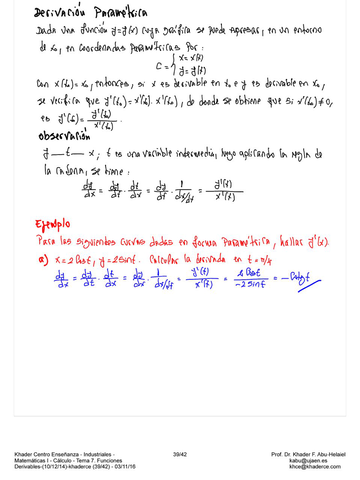 Derivación Paramétrica
Dada una función y=y(x) cuya gráfica se puede expresar, en un entorno
de x₀, en coordenadas Paramétricas por:
C = { x = x(t)
y = y(t)
Con x(t₀) = x₀, entonces, si x es derivable en t₀ e y es derivable en x₀,
se verifica que y'(t₀) = y'(x₀). x'(t₀), de donde se obtiene que si x'(t₀) ≠ 0,
es y'(x₀) = y'(t₀)/x'(t₀).
Observación
y — t — x ; t es una variable intermedia, luego aplicando la regla de
la cadena, se tiene:
dy/dx = dy/dt · dt/dx = dy/dt · 1/(dx/dt) = y'(t)/x'(t)
Ejemplo
Para las siguientes curvas dadas en forma Paramétrica, hallar y'(x).
a) x = 2 Cost, y = 2 sint. Calcular la derivada en t = π/4
dy/dx = dy/dt · dt/dx = dy/dt · 1/(dx/dt) = y'(t)/x'(t) = 2 Cost/-2 sint = - Cotgt
Khader Centro Enseñanza - Industriales -
Matemáticas I - Cálculo - Tema 7. Funciones
Derivables-(10/12/14)-khaderce (39/42) - 03/11/16
39/42
Prof. Dr. Khader F. Abu-Helaiel
kabu@ujaen.es
khce@khaderce.com